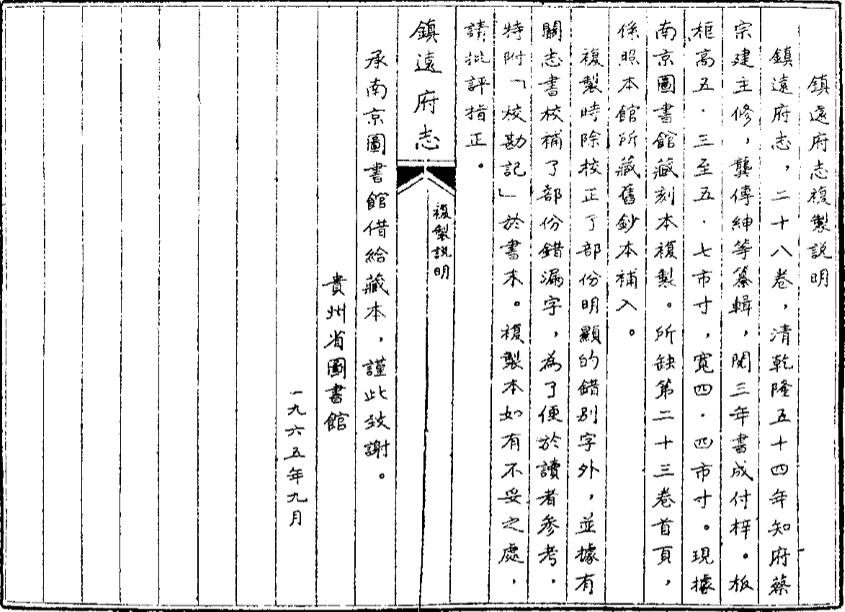 鎮遠府志複製説明
鎮遠府志，二十八卷，清乾隆五十四年知府蔡
宗建主修，龔傳紳等纂輯，閱三年書成付梓。板
框高五·三至五·七市寸，寬四·四市寸。現據
南京圖書館藏刻本複製。所缺第二十三卷首頁，
係照本館所藏舊鈔本補入。
複製時除校正了部份明顯的錯別字外，並據有
關志書校補了部份錯漏字，為了便於讀者參考，
特附「校勘記」於書末。複製本如有不妥之處，
請批評指正。
鎮遠府志
複製説明
承南京圖書館借給藏本，謹此致謝。
貴州省圖書館
一九六五年九月